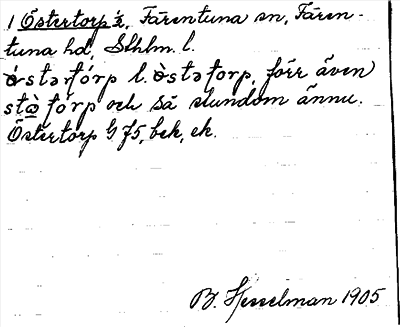 1 Östertorp ½, Färentuna sn, Fären-
tuna hd, Sthlm. l.
östərtórp l. östətorp, förr även
stə̀tórp och så stundom ännu.
Östertorp G 75, bek, ek.
B. Hesselman 1905